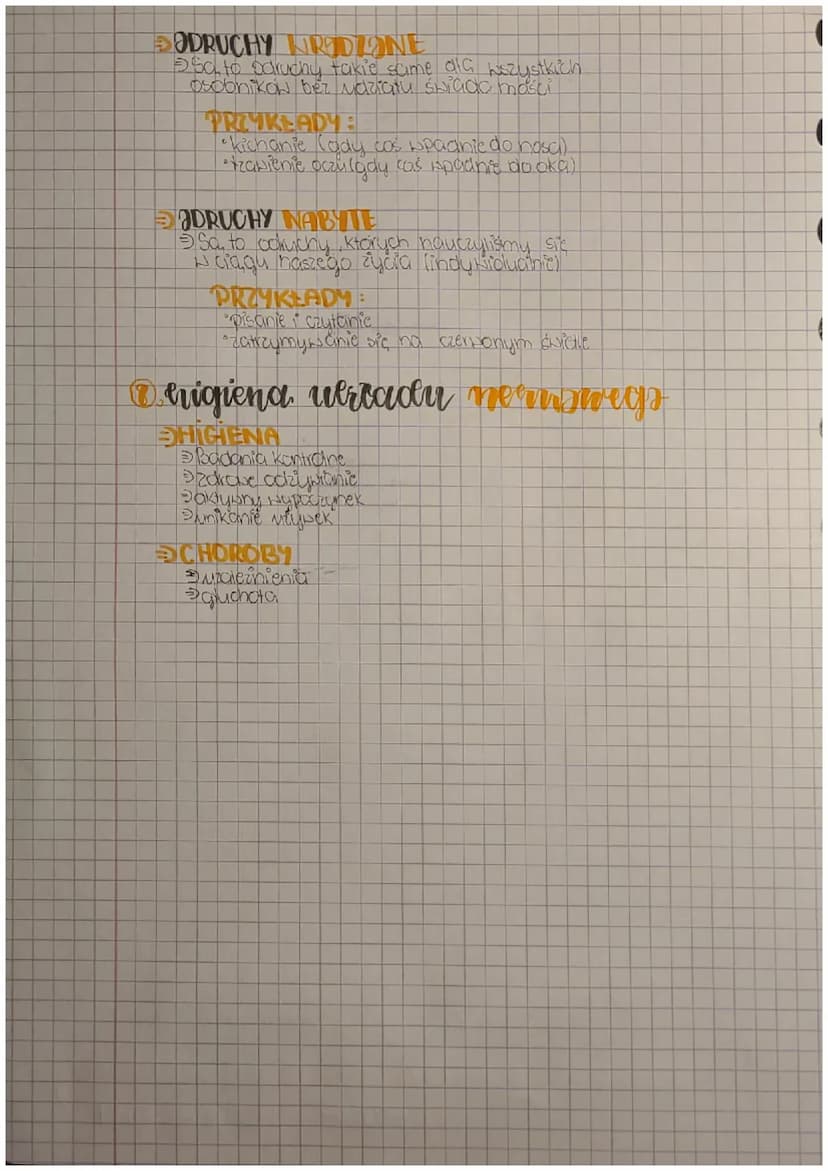 ODRUCHY WRODZONE
Są to odruchy takie same dla wszystkich
osobników bez udziału świadomości
PRZYKŁADY:
• kichanie (gdy coś wpadnie do nosa)
• łzawienie oczu (gdy coś wpadnie do oka)
ODRUCHY NABYTE
Są to odruchy, których nauczyliśmy się
w ciągu naszego życia (indywidualnie)
PRZYKŁADY:
• pisanie i czytanie
• zatrzymywanie się na czerwonym świetle
higiena układu nerwowego
HIGIENA
Badania kontrolne
zdrowe odżywianie
aktywny wypoczynek
unikanie używek
CHOROBY
uzależnienia
głuchota